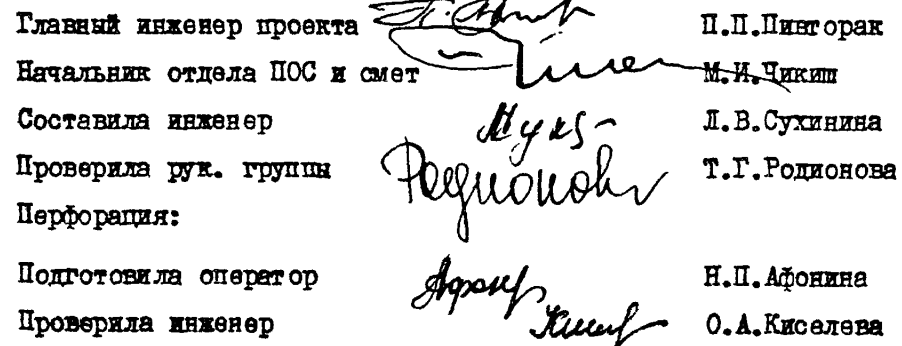 Главный инженер проекта П.П.Пивторак
Начальник отдела ПОС и смет М.И.Чикиш
Составила инженер Л.В.Сухинина
Проверила рук. группы Родионова Т.Г.Родионова
Перфорация:
Подготовила оператор Н.П.Афонина
Проверила инженер О.А.Киселева